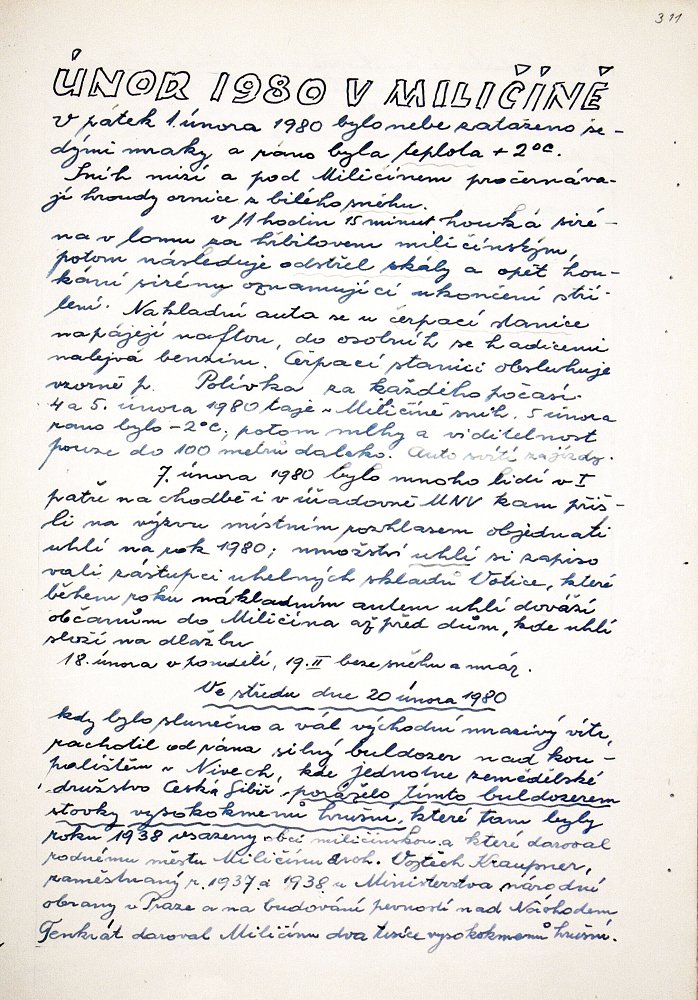 311
ÚNOR 1980 V MILIČÍNĚ
V pátek 1. února 1980 bylo nebe zataženo še-
dými mraky a ráno byla teplota + 2°C.
Sníh mizí a pod Miličínem pročernáva-
jí hroudy ornice z bílého sněhu.
v 11 hodin 15 minut houká siré-
na v lomu za hřbitovem miličínským,
potom následuje odstřel skály a opět hou-
kání sirény oznamující ukončení stří-
lení. Nakladní auta se u čerpací stanice
napájejí naftou, do osobních se hadicemi
nalejvá benzin. Čerpací stanici obsluhuje
vzorně p. Polívka za každého počasí.
4 a 5. února 1980 taje v Miličíně sníh. 5 února
ráno bylo -2°C, potom mlhy a viditelnost
pouze do 100 metrů daleko. Auto svítí zajízdy.
7. února 1980 bylo mnoho lidí v I
patře na chodbě i v úřadovně MNV kam přiš-
li na výzvu místním rozhlasem objednati
uhlí na rok 1980; množství uhlí si zapiso
vali zástupci uhelných skladů Votice, které
během roku nákladním autem uhlí dováží
občanům do Miličína až před dům, kde uhlí
složí na dlažbu
18. února v pondělí, 19. II beze sněhu a mráz.
Ve středu dne 20 února 1980
kdy bylo slunečno a vál východní mrazivý vítr,
rachotil od rána silný buldozer nad kou-
palištěm v Nivech, kde jednotne zemědělské
družstvo Česká Sibiř poráželo tímto buldozerem
stovky vysokokmenů hrušní, které tam byly
roku 1938 vsazeny obcí miličínskou a které daroval
rodnému městu Miličínu arch. Vojtěch Kraupner,
zaměstnaný r. 1937 a 1938 u Ministerstva národní
obrany v Praze a na budování pevností nad Náchodem
Tenkrát daroval Miličínu dva tisíce vysokokmenů hrušní.